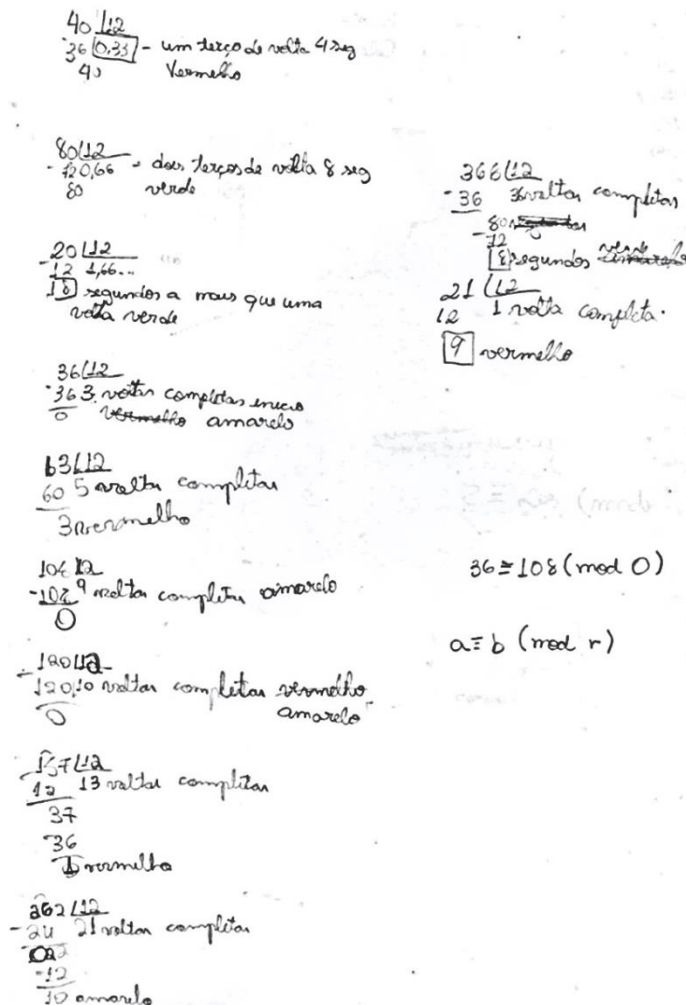 40 |12
36 0,33 - um terço de volta 4 seg
40 Vermelho
80 |12
- 72 0,66 - dois terços de volta 8 seg
80 verde
20 |12
- 12 1,66...
segundos a mais que uma
volta verde
36 |12
- 36 3 voltas completas inicio
0 vermelho amarelo
63 |12
60 5 voltas completas
3 vermelho
108 |12
- 108 9 voltas completas amarelo
0
120 |12
- 120 10 voltas completas vermelho
0 amarelo
157 |12
- 12 13 voltas completas
37
- 36
1 vermelho
262 |12
- 24 21 voltas completas
022
- 12
10 amarelo
366 |12
- 36 voltas completas
segundos
21 |12
12 1 volta completa.
9 vermelho
36 ≡ 108 (mod 0)
a ≡ b (mod r)